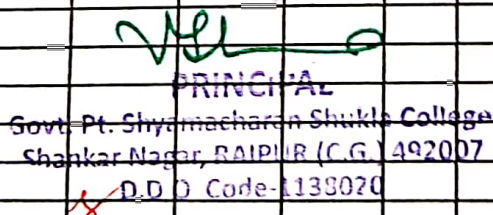 PRINCIPAL
Govt. Pt. Shyamacharan Shukla College
Shankar Nagar, RAIPUR (C.G.) 492007
D.D.O Code-1138020